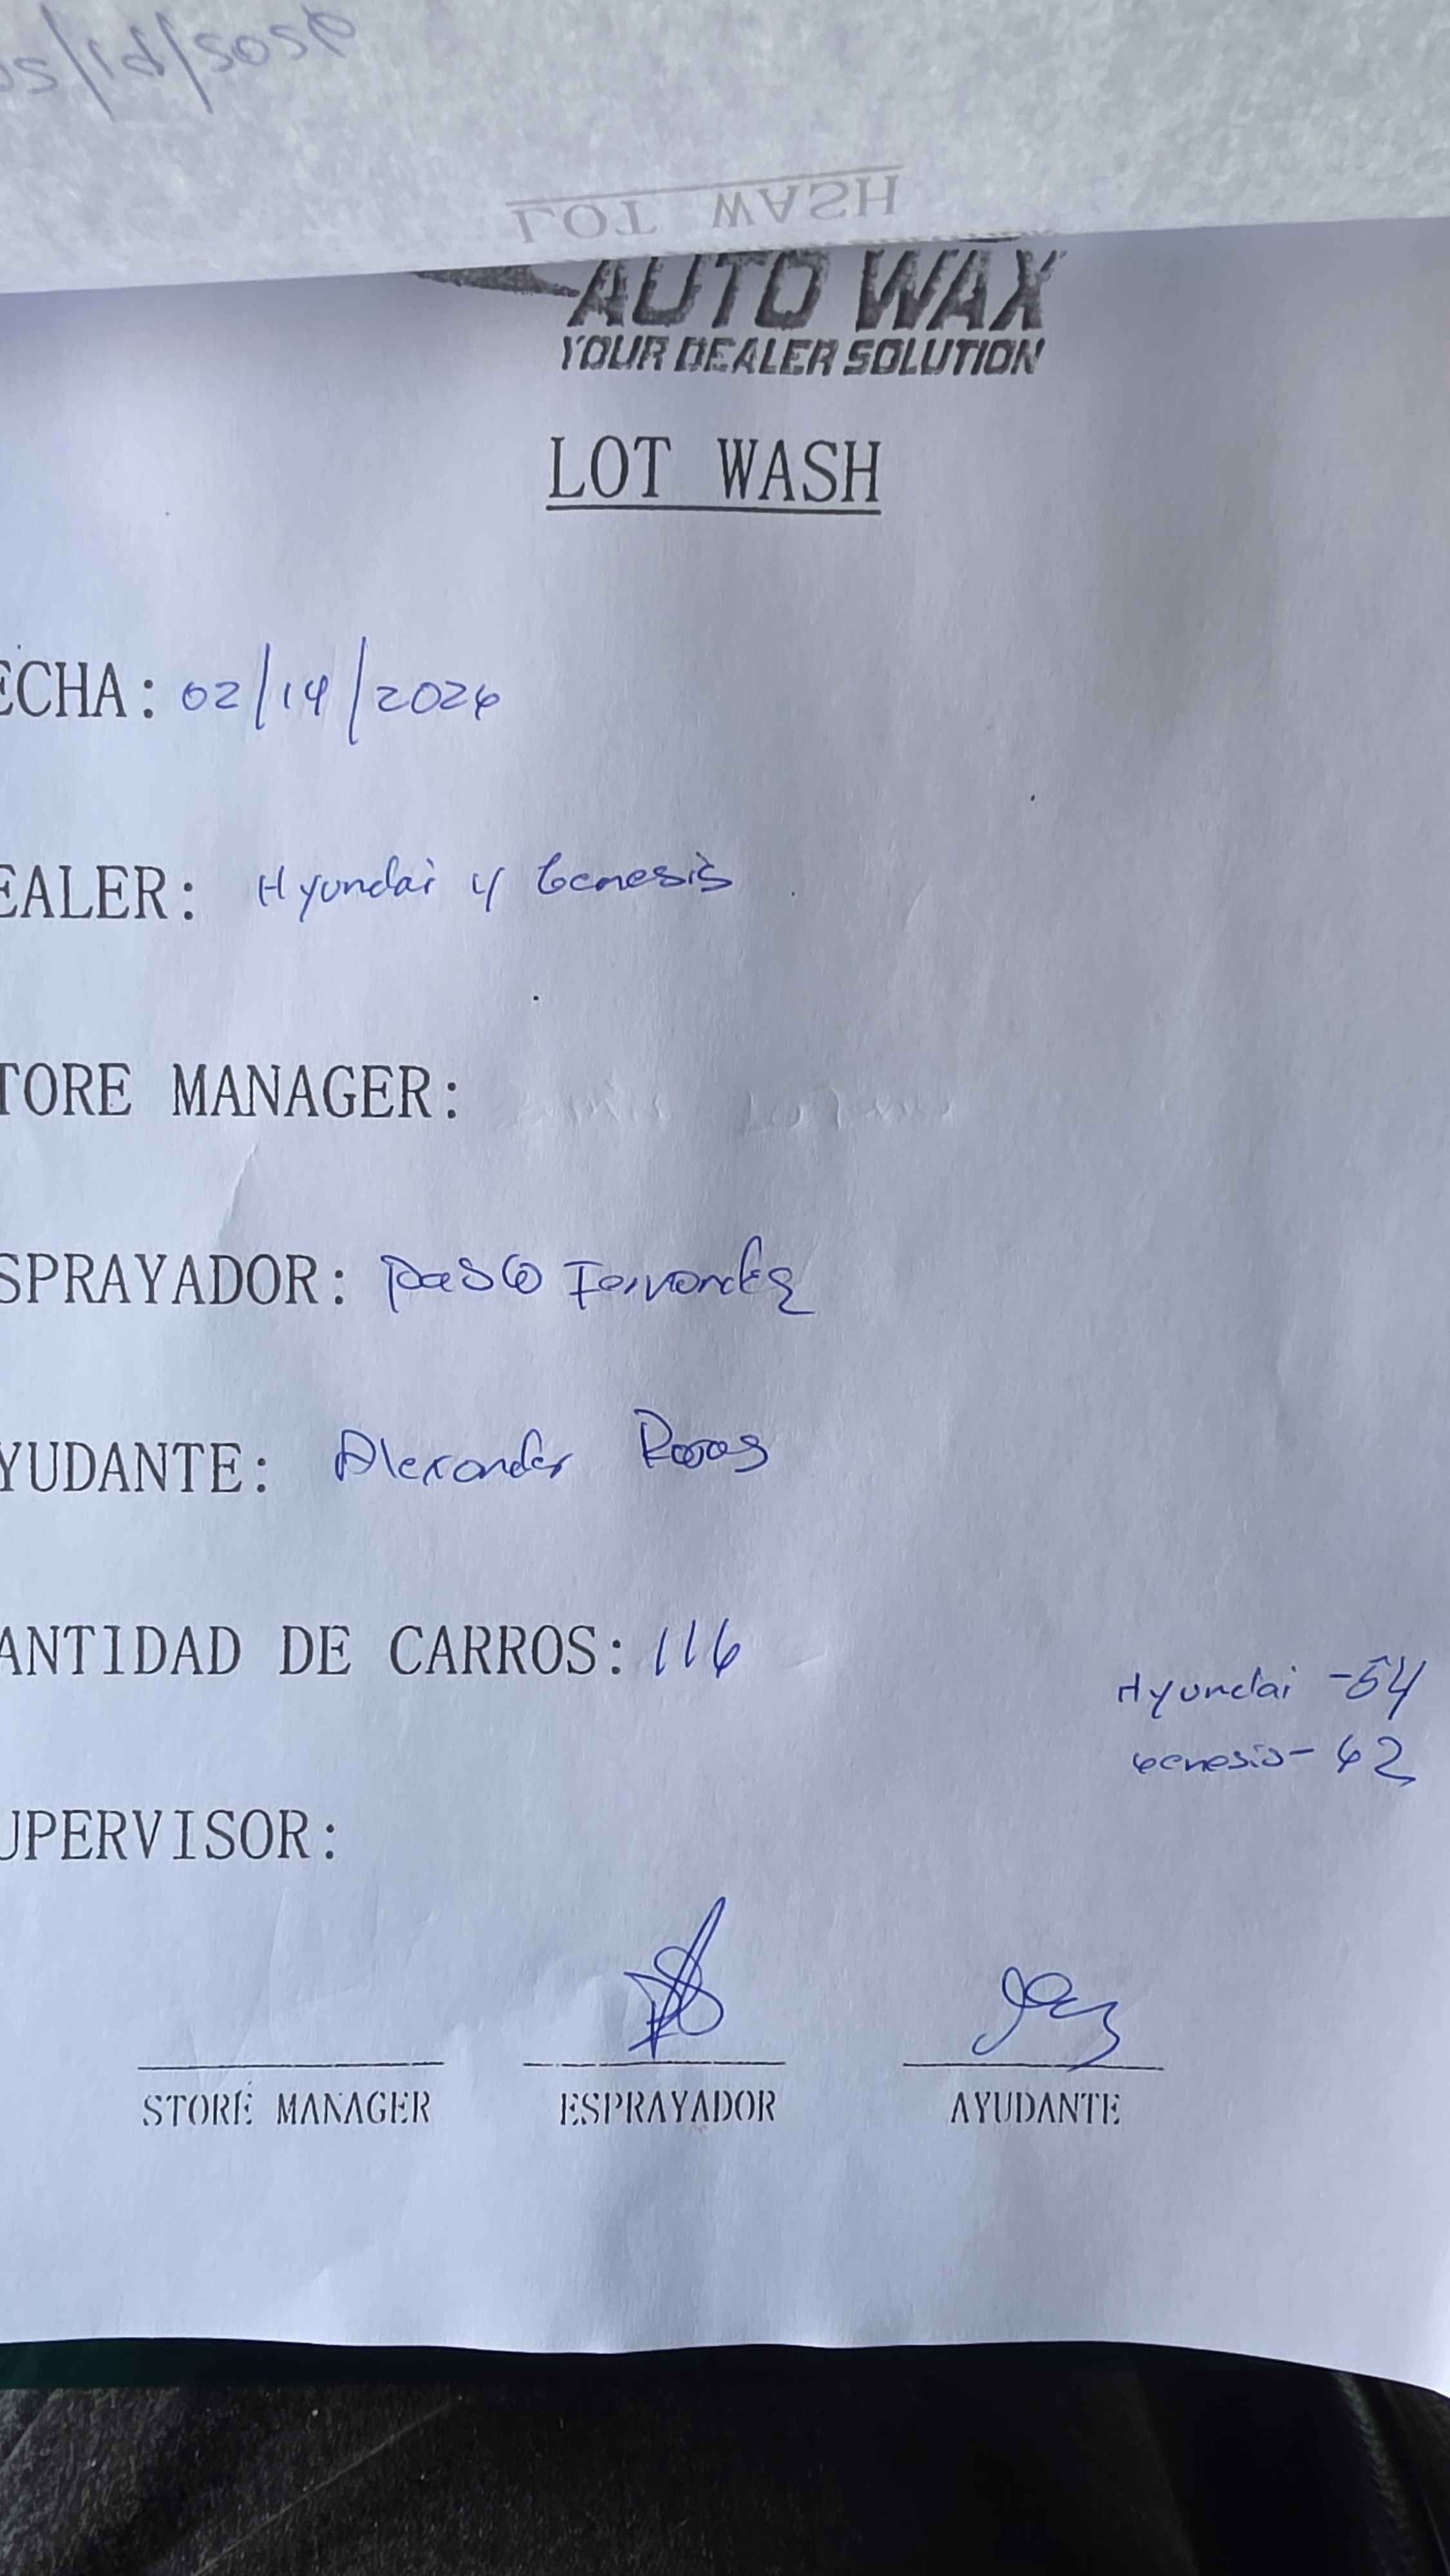 LOT WASH
AUTO WAX
YOUR DEALER SOLUTION
LOT WASH
ECHA: 02/14/2026
EALER: Hyundai y Genesis
TORE MANAGER:
SPRAYADOR: Pablo Fernandez
YUDANTE: Alexander Rosas
ANTIDAD DE CARROS: 116
Hyundai - 54
Genesis - 62
UPERVISOR:
STORE MANAGER ESPRAYADOR AYUDANTE